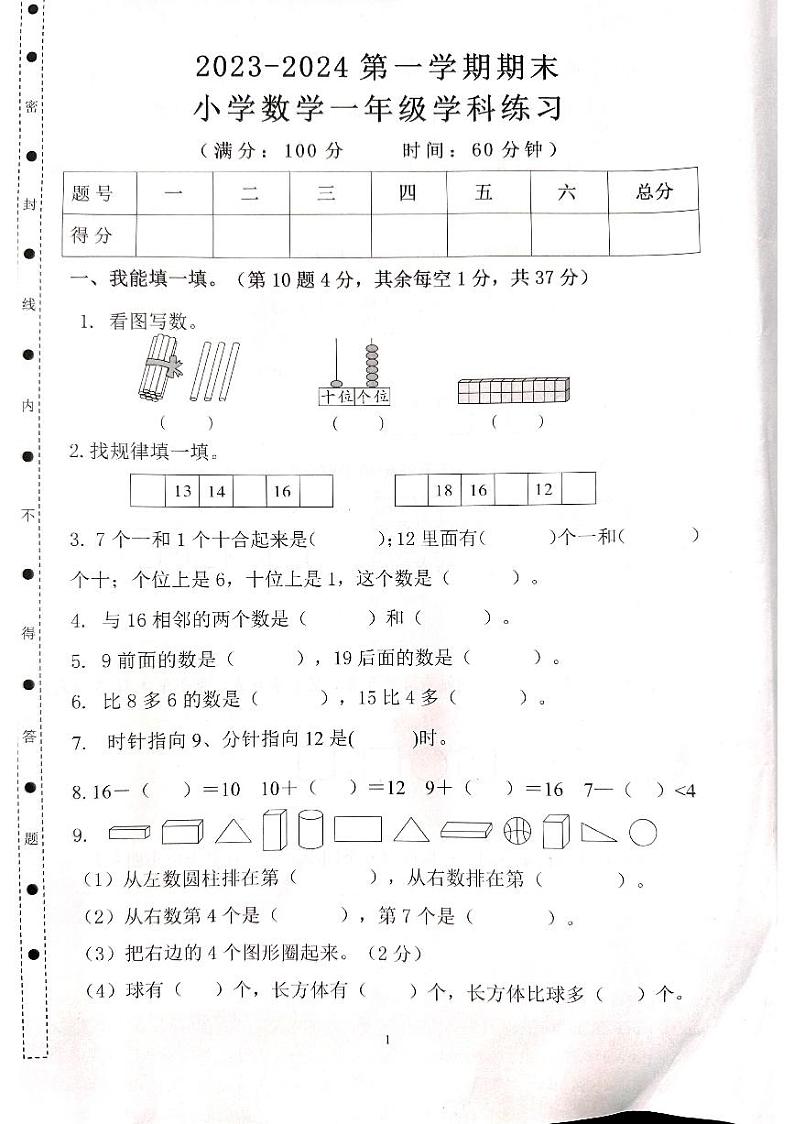 2023-2024 第一学期期末
小学数学一年级学科练习
（满分：100 分　　时间：60 分钟）
题号 一 二 三 四 五 六 总分
得分
一、我能填一填。（第 10 题 4 分，其余每空 1 分，共 37 分）
1. 看图写数。
十位 个位
（　　） （　　） （　　）
2.找规律填一填。
13 14 16 18 16 12
3. 7 个一和 1 个十合起来是(　　　);12 里面有(　　　)个一和(　　　)
个十；个位上是 6，十位上是 1，这个数是（　　　）。
4. 与 16 相邻的两个数是（　　　）和（　　　）。
5. 9 前面的数是（　　　），19 后面的数是（　　　）。
6. 比 8 多 6 的数是（　　　），15 比 4 多（　　　）。
7. 时针指向 9、分针指向 12 是(　　　)时。
8.16－（　　）＝10　10＋（　　）＝12　9＋（　　）＝16　7—（　　）<4
9.
（1）从左数圆柱排在第（　　　），从右数排在第（　　　）。
（2）从右数第 4 个是（　　　），第 7 个是（　　　）。
（3）把右边的 4 个图形圈起来。（2 分）
（4）球有（　　）个，长方体有（　　）个，长方体比球多（　　）个。
1
密
封
线
内
不
得
答
题